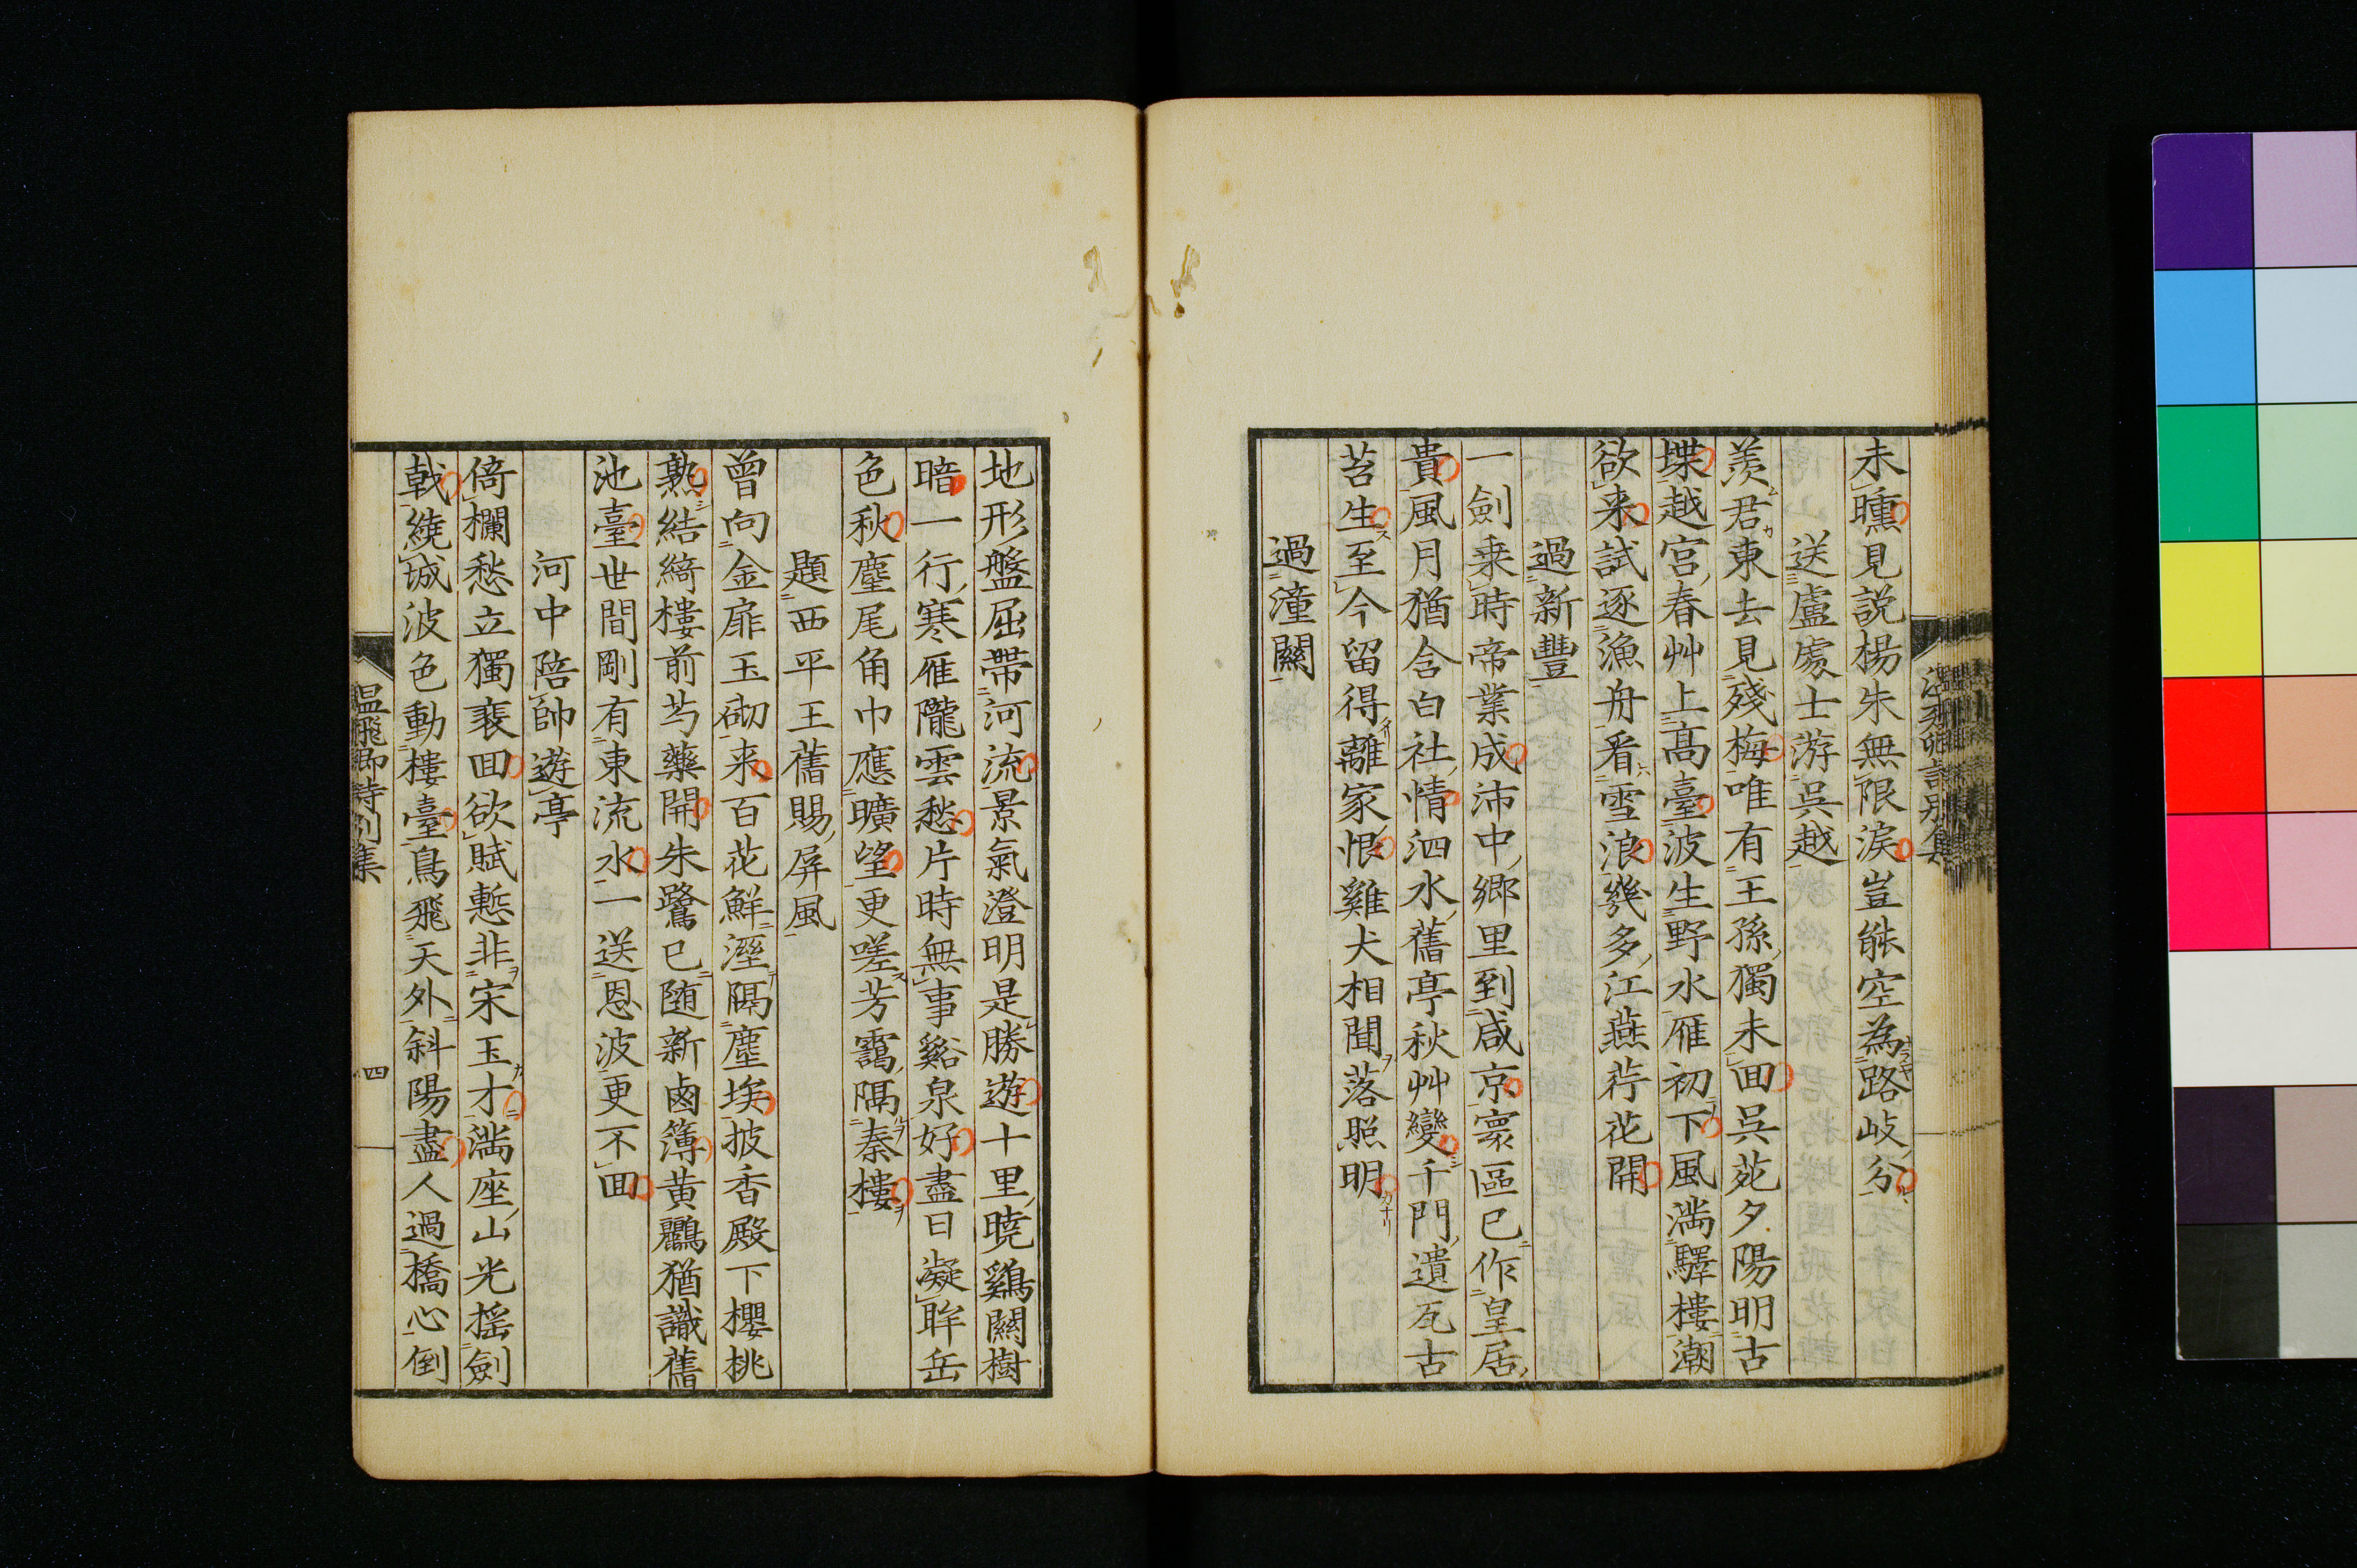 未曛見説楊朱無限淚豈能空為路岐分
送盧處士游吳越
羨君東去見殘梅唯有王孫獨未回吳苑夕陽明古
堞越宮春艸上髙臺波生野水雁初下風滿驛樓潮
欲来試逐漁舟看雪浪幾多江燕荇花開
過新豐
一劍乗時帝業成沛中鄉里到咸京寰區已作皇居
貴風月猶含白社情泗水舊亭秋艸變千門遺瓦古
苔生至今留得離家恨雞犬相聞落照明
過潼關
地形盤屈帶河流景氣澄明是勝遊十里曉鷄關樹
暗一行寒雁隴雲愁片時無事谿泉好盡日凝眸岳
色秋麈尾角巾應曠望更嗟芳靄隔秦樓
題西平王舊賜屏風
曽向金扉玉砌来百花鮮溼隔塵埃披香殿下櫻桃
熟結綺樓前芍藥開朱鷺已随新鹵簿黃鸝猶識舊
池臺世間剛有東流水一送恩波更不回
河中陪帥遊亭
倚欄愁立獨裵回欲賦慙非宋玉才滿座山光搖劍
戟繞城波色動樓臺鳥飛天外斜陽盡人過橋心倒
温飛卿詩別集
四